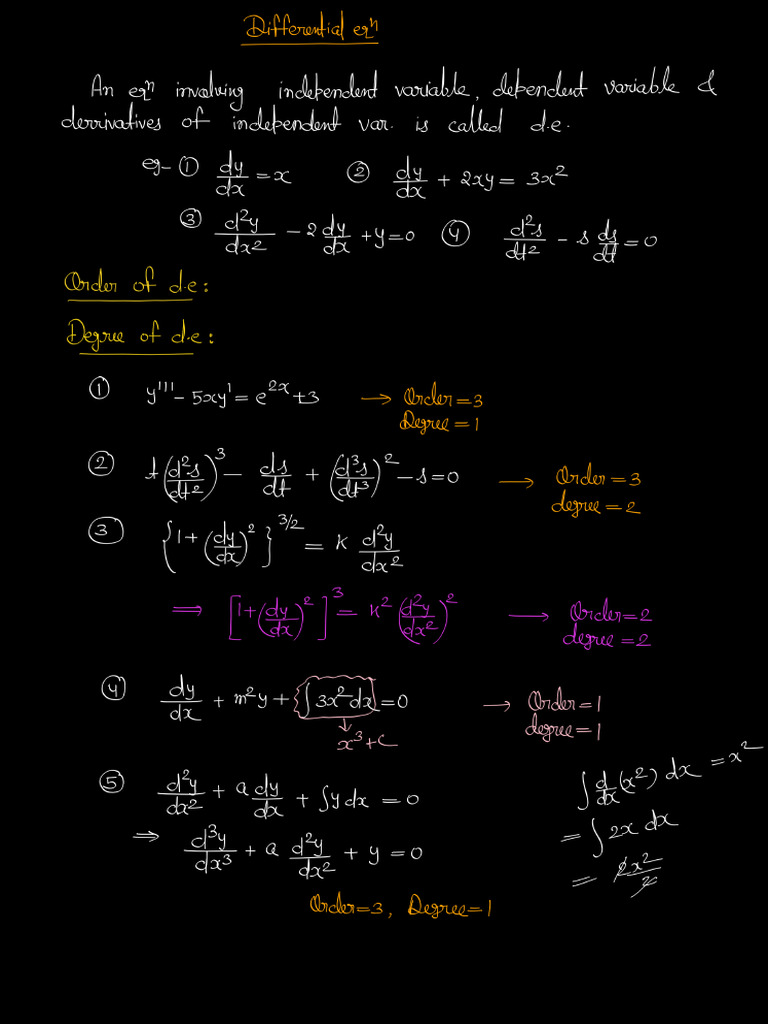 Differential eqⁿ
An eqⁿ involving independent variable, dependent variable &
derrivatives of independent var. is called d.e.
eg- ① dy/dx = x ② dy/dx + 2xy = 3x²
③ d²y/dx² - 2dy/dx + y = 0 ④ d²s/dt² - s ds/dt = 0
Order of d.e:
Degree of d.e:
① y''' - 5xy' = e^(2x) + 3 → Order = 3
Degree = 1
② t(d²s/dt²)³ - ds/dt + (d³s/dt³)² - s = 0 → Order = 3
degree = 2
③ {1 + (dy/dx)²}^(3/2) = K d²y/dx²
⇒ [1 + (dy/dx)²]³ = K² (d²y/dx²)² → Order = 2
degree = 2
④ dy/dx + m²y + {∫3x²dx} = 0 → Order = 1
↓ degree = 1
x³ + c
⑤ d²y/dx² + a dy/dx + ∫y dx = 0
⇒ d³y/dx³ + a d²y/dx² + y = 0
Order = 3, Degree = 1
∫ d/dx (x²) dx = x²
= ∫ 2x dx
= 2x²/2